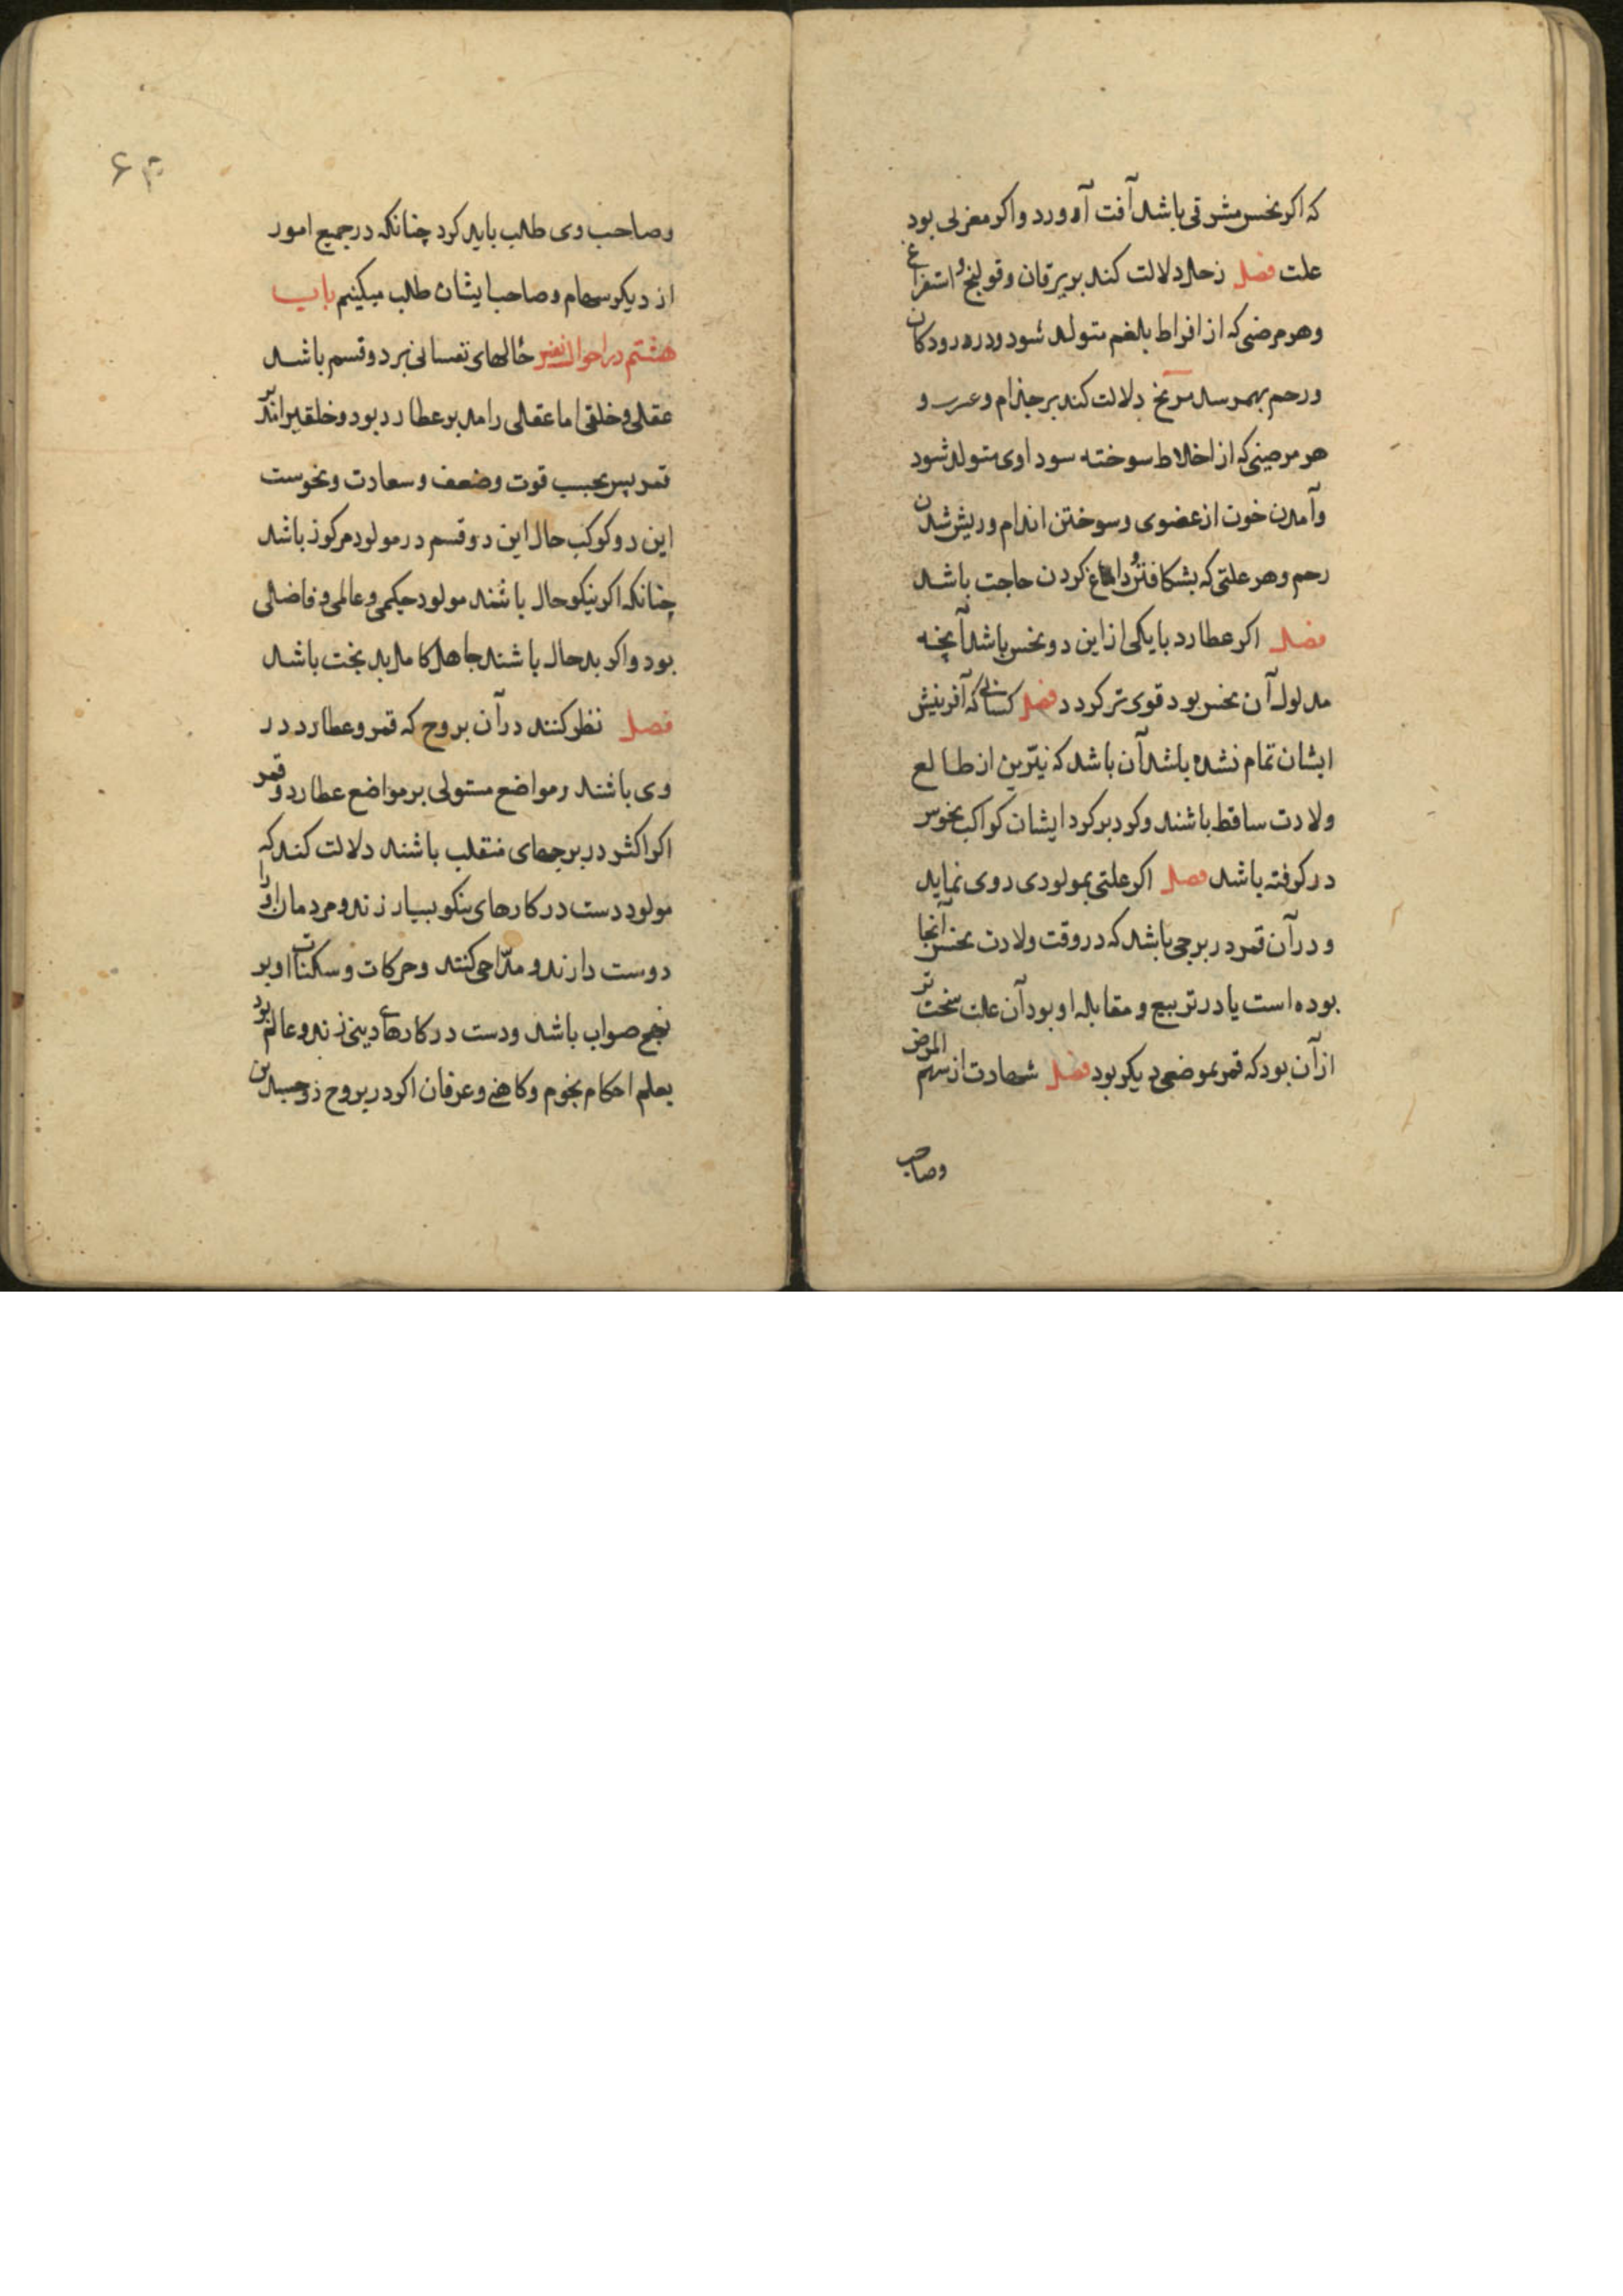 که اکر نحس مشرقی باشد آفت آورد و اکر مغربی بود
علت فصل زحل دلالت کند بر یرقان و قولنج و استفراغ
و هر مرضی که از افراط بلغم متولد شود و درد رودکان
و رحم بهم رسد مریخ دلالت کند بر جذام و و
هر مرضی که از اخلاط سوخته سوداوی متولد شود
و آمدن خون از عضوی و سوختن اندام و ریش شدن
رحم و هر علتی که بشکافتن و داغ کردن حاجت باشد
فصل اکر عطارد با یکی از این دو نحس باشد آنچه
مدلول آن نحس بود قوی تر کردد فصل کسانی که آفرینش
ایشان تمام نشده باشد آن باشد که نیّرین از طالع
ولادت ساقط باشند و کرد بر کرد ایشان کواکب نحوس
در کرفته باشد فصل اکر علتی بمولودی روی نماید
و در آن قمر در برجی باشد که در وقت ولادت نحس آنجا
بوده است یا در تربیع و مقابله او بود آن علت سخت تر
از آن بود که قمر بموضعی دیکر بود فصل شهادت از سهم المرض
وصاحب
۶۳
وصاحب وی طلب باید کرد چنانکه در جمیع امور
از دیکر سهام و صاحب ایشان طلب میکنیم باب
هشتم در احوال نفس حالهای نفسانی بر دو قسم باشد
عقلی و خلقی اما عقلی را مدبر عطارد بود و خلقی را مدبر
قمر پس بحسب قوت و ضعف و سعادت و نحوست
این دو کوکب حال این دو قسم در مولود مرکوز باشد
چنانکه اکر نیکو حال باشند مولود حکیمی و عالمی و فاضلی
بود و اکر بد حال باشند جاهل کامل بد بخت باشد
فصل نظر کنند در آن بروج که قمر و عطارد در
وی باشند و مواضع مستولی بر مواضع عطارد و قمر
اکر اکثر در برجهای منقلب باشند دلالت کند که
مولود دست در کارهای نیکو بسیار زند و مردمان او را
دوست دارند و مدّاحی کنند و حرکات و سکنات او بر
نهج صواب باشد و دست در کارهای دینی زند و عالم بود
بعلم احکام نجوم و کاهنی و عرفان اکر در بروج ذو جسدین